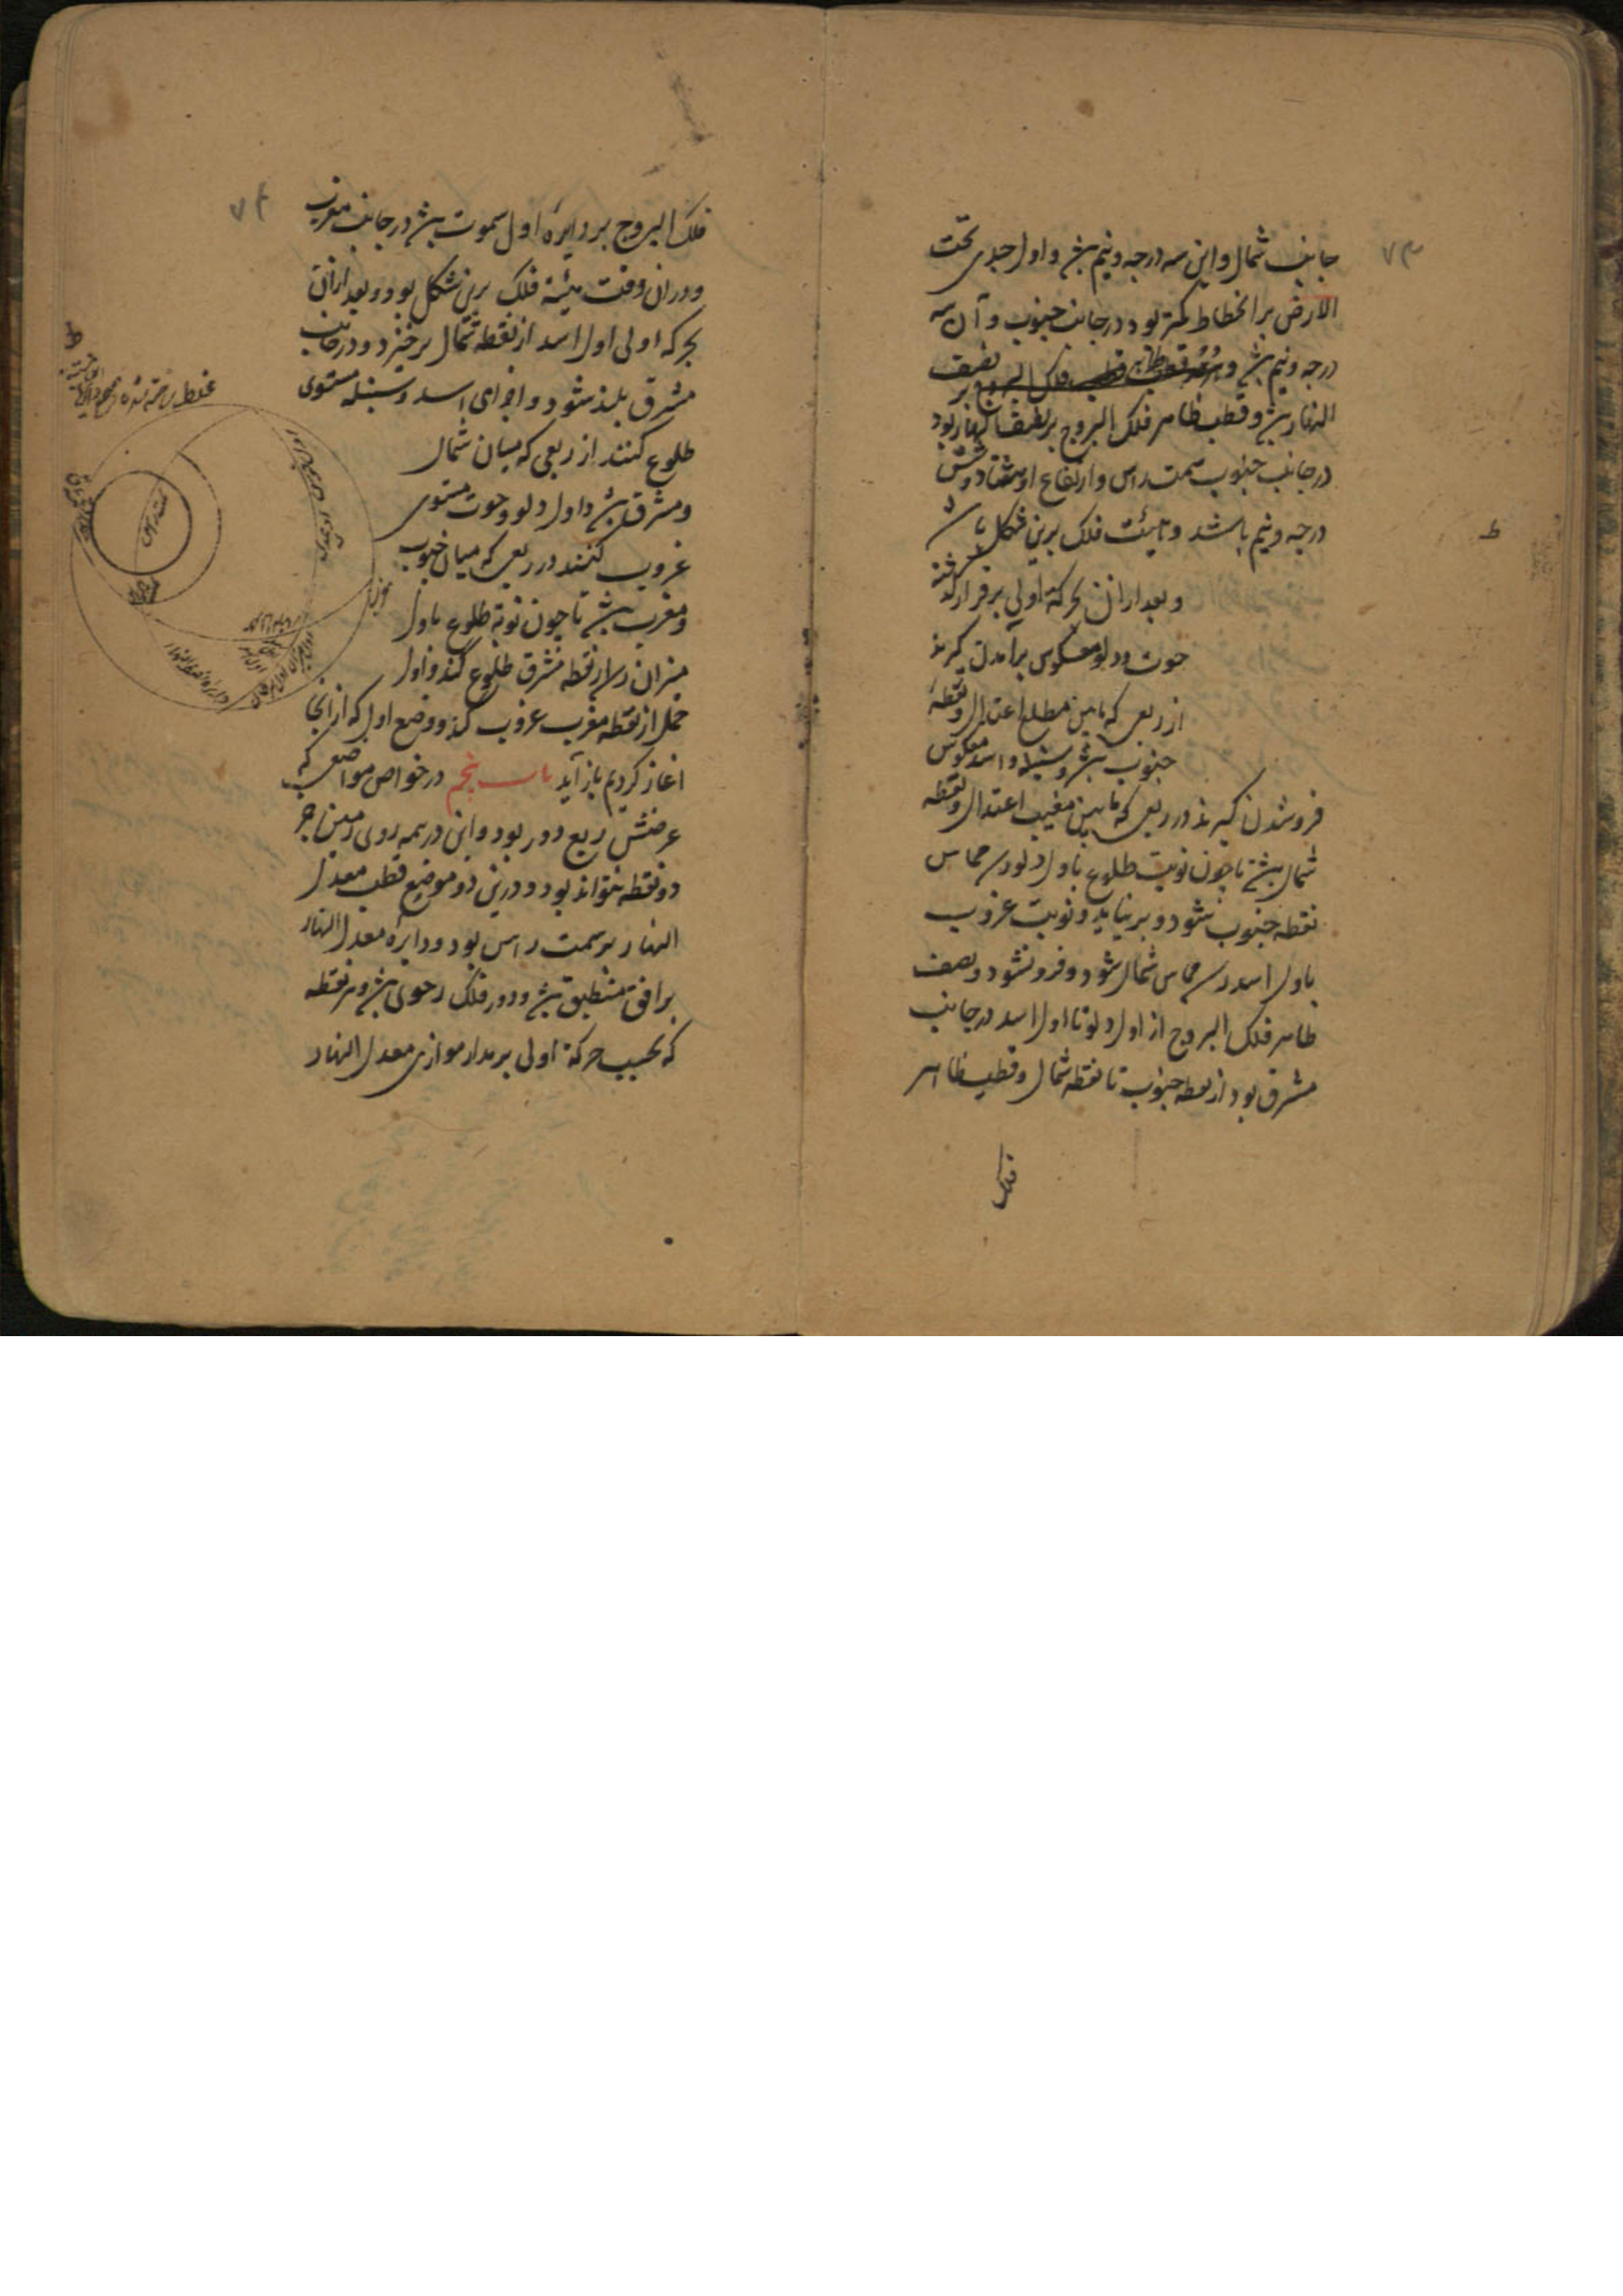 ۷۳
جانب شمال و این سه درجه و نیم بش و اول جدی تحت
الارض بر انحطاط کمتر بود در جانب جنوب و آن سه
درجه و نیم بش و قطب ظاهر فلک البروج بر نصف
النهار بش و قطب ظاهر فلک البروج بر نصف النهار بود
در جانب جنوب سمت راس و ارتفاع او هشتاد و شش
درجه و نیم باشد و هیئت فلک برین شکل باشد
ط
و بعد ازان بحرکة اولی برقرار گذشته
حوت و دلو معکوس برآمدن گیرند
از ربعی که مابین مطلع اعتدال و نقطهٔ
جنوب بش و سنبله و اسد معکوس
فروشدن گیرند در ربعی که مابین مغیب اعتدال و نقطه
شمال بش تا چون نوبت طلوع باول دلو رسد مماس
نقطه جنوب شود و برنیاید و نوبت غروب
باول اسد رسد مماس شمال شود و فرونشود و نصف
ظاهر فلک البروج از اول دلو تا اول اسد در جانب
مشرق بود از نقطه جنوب تا نقطه شمال و قطب ظاهر
فلک
۷۴
فلک البروج بر دایرهٔ اول سموت بش در جانب مغرب
و دران وقت هیئة فلک برین شکل بود و بعد ازان
بحرکه اولی اول اسد از نقطه شمال برخیزد و در جانب
مشرق بلند شود و اجزای اسد و سنبله مستوی
طلوع کنند از ربعی که میان شمال
و مشرق بش و اول دلو و حوت مستوی
غروب کنند در ربعی که میان جنوب
و مغرب بش تا چون نوبة طلوع باول
میزان رسد از نقطه مشرق طلوع کند و اول
حمل از نقطه مغرب غروب کند و وضع اول که ازانجا
اغاز کردیم باز آید باب پنجم در خواص مواضعی که
عرضش ربع دور بود و این در همه روی زمین جز
دو نقطه نتواند بود و درین دو موضع قطب معدل
النهار بر سمت راس بود و دایرهٔ معدل النهار
بر افق منطبق بش و دور فلک رحوی بش و هر نقطه
که بحسب حرکة اولی بر مدار موازی معدل النهار
ط
غلط ساخته شده
سمت راس
دایره نصف النهار